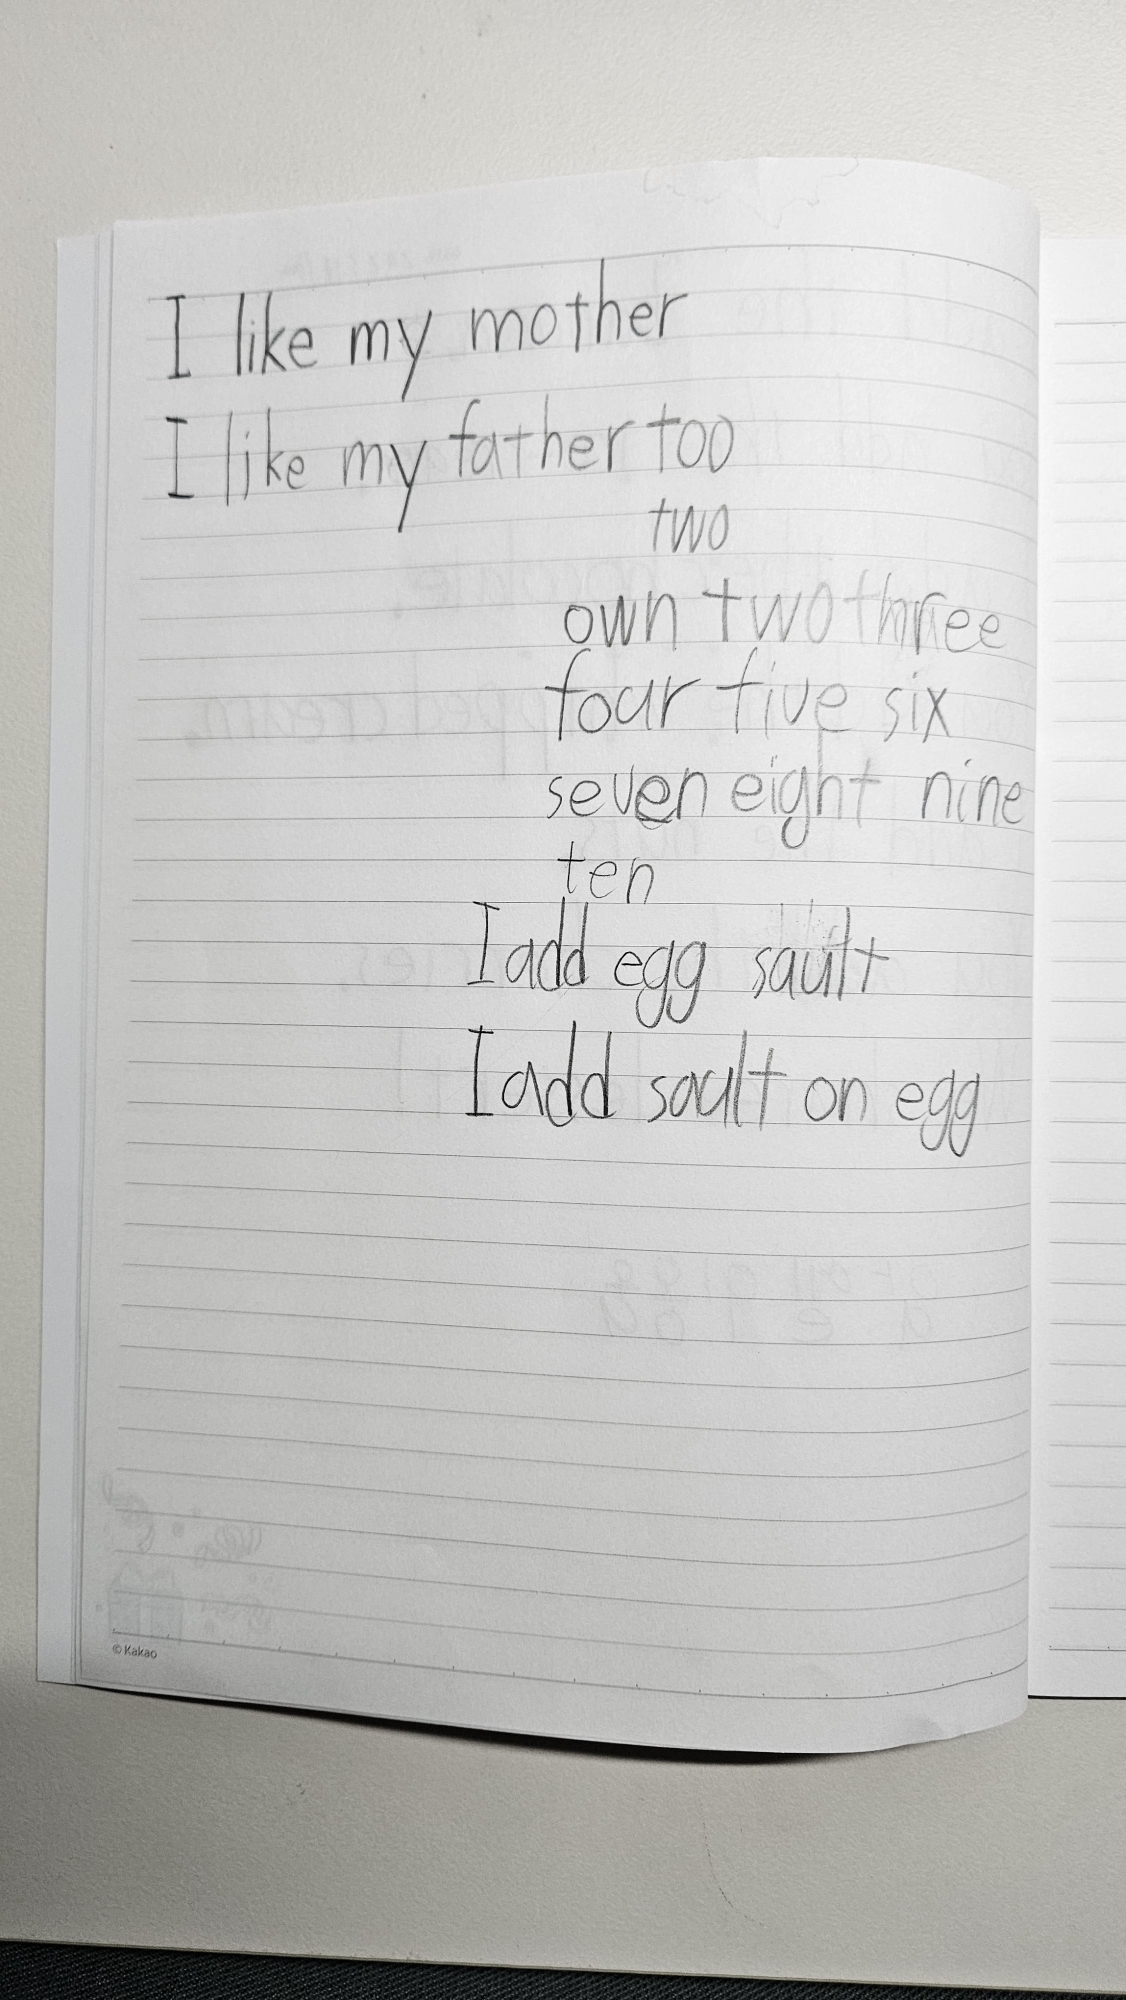 I like my mother
I like my father too
two
own two three
four five six
seven eight nine
ten
I add egg sault
I add sault on egg
© Kakao